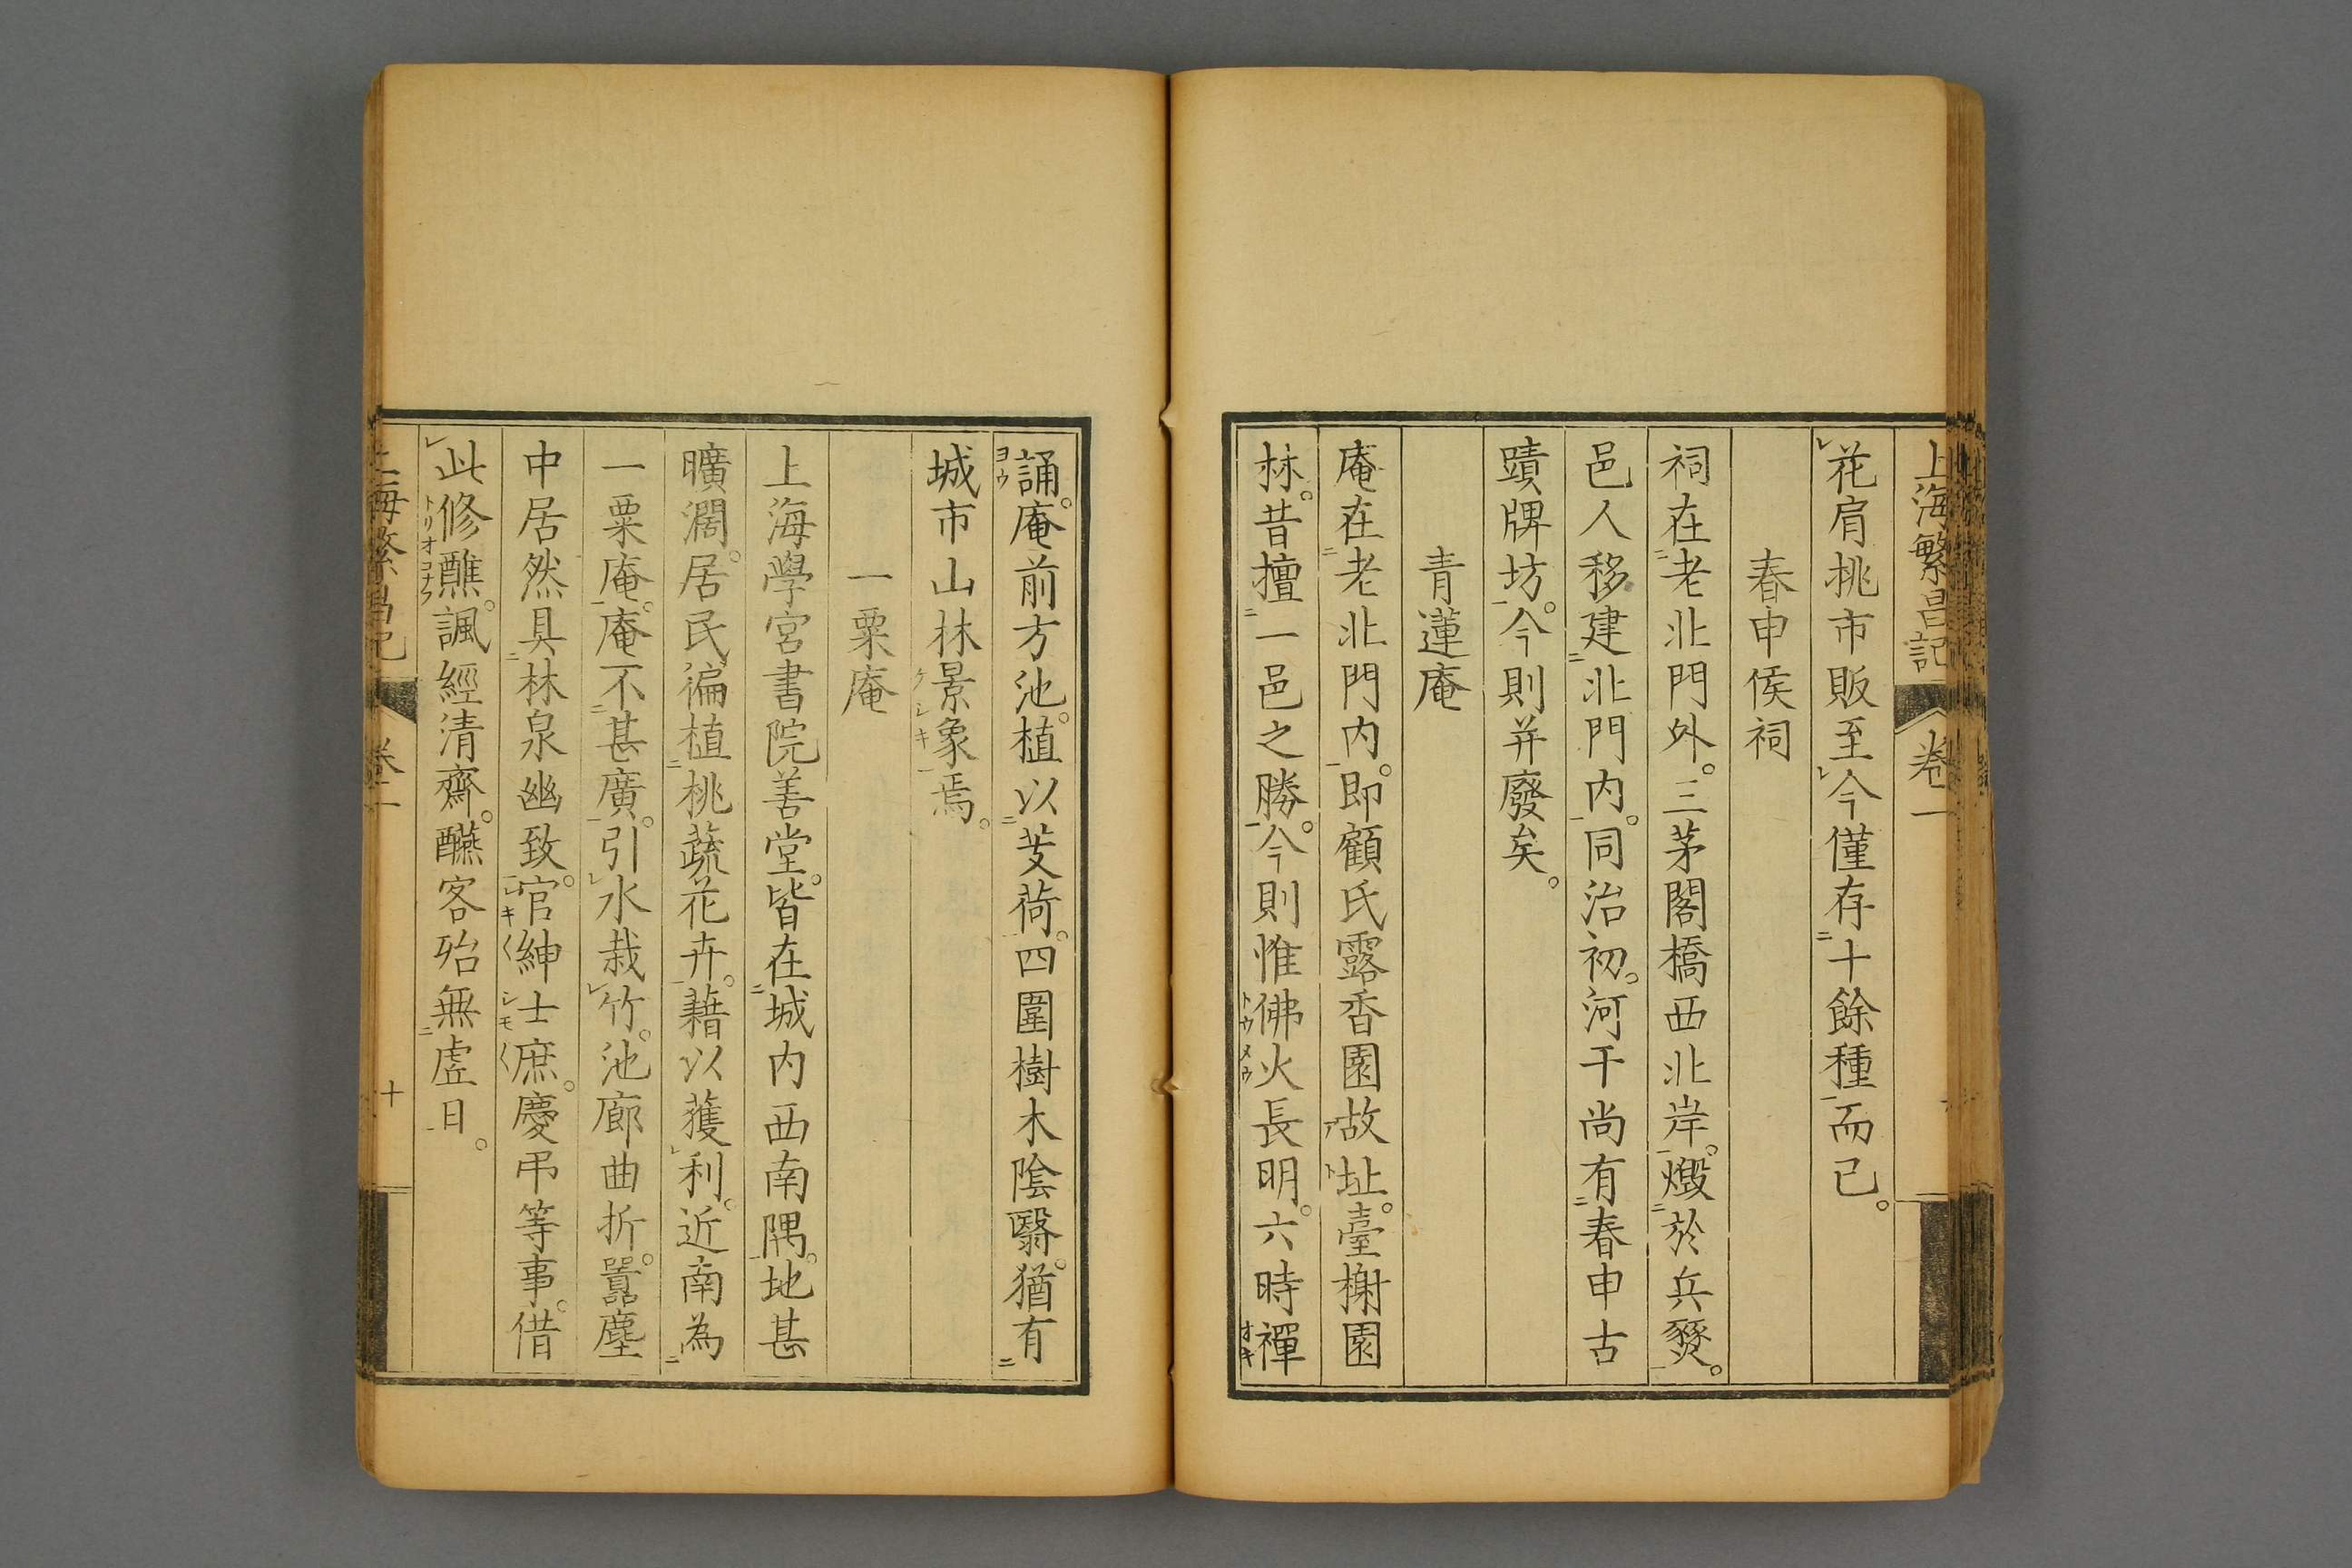 上海繁昌記 卷一
花肩挑市販至今僅存十餘種而已。
春申侯祠
祠在老北門外。三茅閣橋西北岸。燬於兵燹。
邑人移建北門内。同治初。河干尚有春申古
蹟牌坊。今則并廢矣。
青蓮庵
庵在老北門内。即顧氏露香園故址。臺榭園
林。昔擅一邑之勝。今則惟佛火長明。六時禪
誦。庵前方池。植以芰荷。四圍樹木陰翳。猶有
城市山林景象焉。
一粟庵
上海學宮書院善堂。皆在城内西南隅。地甚
曠濶。居民徧植桃蔬花卉。藉以獲利。近南為
一粟庵。庵不甚廣。引水栽竹。池廊曲折。囂塵
中居然具林泉幽致。官紳士庶。慶弔等事。借
此修醮。諷經清齋。醼客殆無虛日。
上海繁昌記 卷一 十